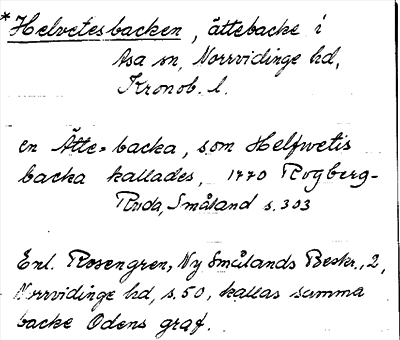 *Helvetesbacken, ättebacke i
Asa sn, Norrvidinge hd,
Kronob. l.
en Ätte-backa, som Helfwetis
backa kallades, 1770 Rogberg-
Ruda, Småland s. 303
Enl. Rosengren, Ny Smålands Beskr., 2,
Norrvidinge hd, s. 50, kallas samma
backe Odens graf.